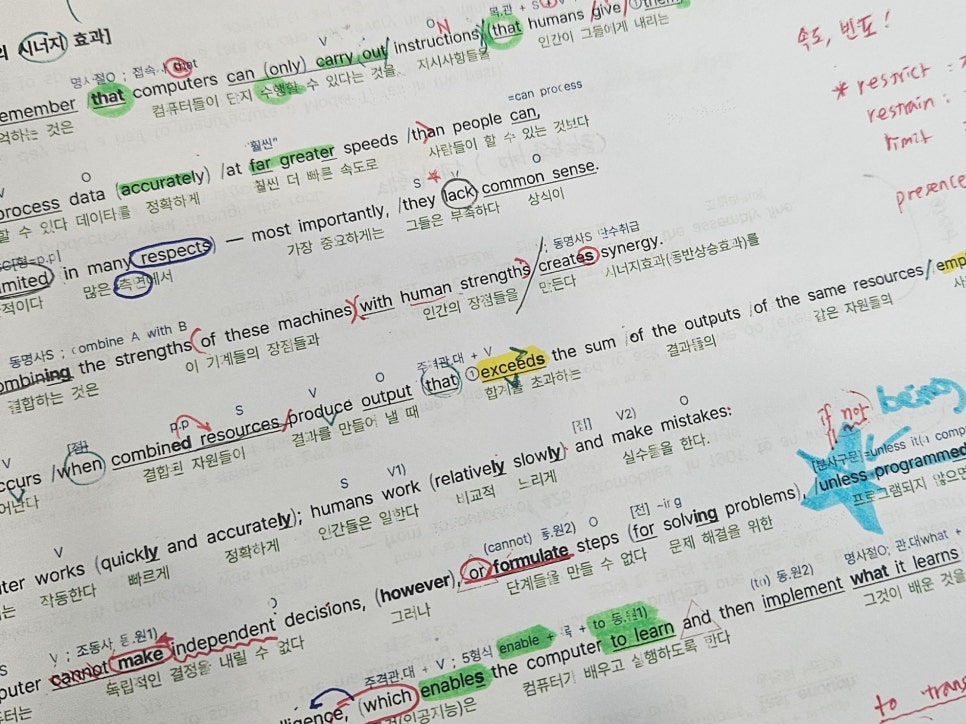 의 시너지 효과]
명사절O ; 접속사 that
목.관 + S
V
O
N
emember /that computers can (only) carry out instructions (that humans give /①them
억하는 것은 컴퓨터들이 단지 수행할 수 있다는 것을 지시사항들을 인간이 그들에게 내리는
속도, 빈도!
* restrict =
restrain :
limit
presence
=can process
V
O
"훨씬"
process data (accurately) /at far greater speeds /than people can,
할 수 있다 데이터를 정확하게 훨씬 더 빠른 속도로 사람들이 할 수 있는 것보다
S
V
O
SC[형=p.p]
imited in many respects — most importantly, /they lack common sense.
적이다 많은 측면에서 가장 중요하게는 그들은 부족하다 상식이
동명사S ; combine A with B
; 동명사S 단수취급
ombining the strengths (of these machines) with human strengths creates synergy.
결합하는 것은 이 기계들의 장점들과 인간의 장점들을 만든다 시너지효과(동반상승효과)를
[접]
p.p
S
V
O
주격관.대 + V
V
ccurs /when combined resources produce output (that ①exceeds the sum /of the outputs /of the same resources/ emp
어난다 결합된 자원들이 결과를 만들어 낼 때 합계를 초과하는 결과들의 같은 자원들의
V
S
V1)
[접]
V2)
O
uter works (quickly and accurately); humans work (relatively slowly) and make mistakes:
는 작동한다 빠르게 정확하게 인간들은 일한다 비교적 느리게 실수들을 한다.
if not being
S
V ; 조동사, 동.원1)
O
(cannot) 동.원2) O
[전] ~ing
[분사구문]=unless it(a comp
puter cannot make independent decisions, (however), or formulate steps (for solving problems), /unless programmed
터는 독립적인 결정을 내릴 수 없다 그러나 단계들을 만들 수 없다 문제 해결을 위한 프로그램되지 않으면
주격관.대 + V ; 5형식 enable + 목 + to 동.원1)
(to) 동.원2)
명사절O; 관.대what +
lligence, (which enables the computer to learn and then implement what it learns
(인공지능)은 컴퓨터가 배우고 실행하도록 한다 그것이 배운 것을
to trans